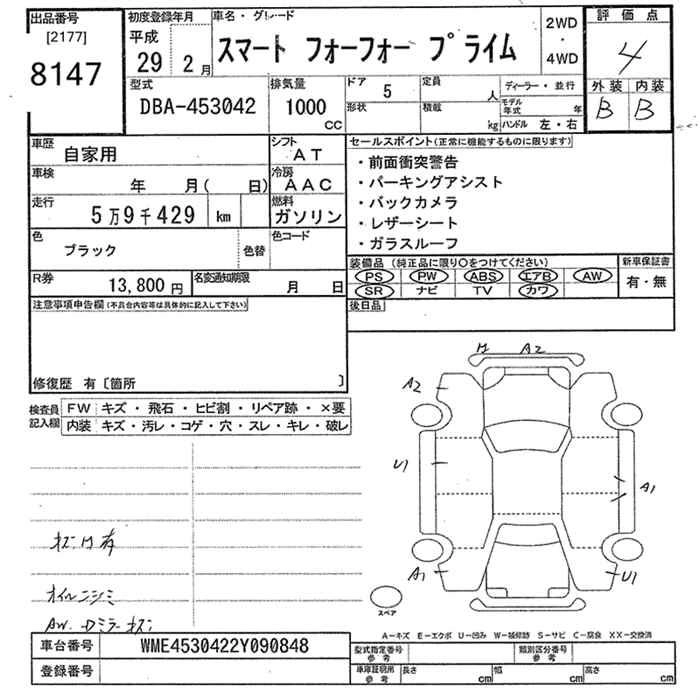 出品番号 初度登録年月 車名・グレード 2WD ・ 4WD 評価点
[2177] 平成
8147 29 2月 スマート フォーフォー プライム 4
型式 排気量 ドア 5 定員 人 ディーラー・並行 外装 内装
DBA-453042 1000 CC 形状 積載 kg モデル年式 年 B B
ハンドル 左・右
車歴 自家用 シフト AT セールスポイント(正常に機能するものに限ります)
車検 年 月( 日) 冷房 AAC ・前面衝突警告
・パーキングアシスト
走行 5万9千429 km 燃料 ガソリン ・バックカメラ
・レザーシート
色 ブラック 色替 色コード ・ガラスルーフ
装備品(純正品に限り○をつけてください) 新車保証書
R券 13,800円 名変通知期限 月 日 PS PW ABS エアB AW 有・無
SR ナビ TV カワ
注意事項申告欄(不具合内容等は具体的に記入して下さい) 後日品
修復歴 有〔箇所 〕
検査員記入欄 FW キズ・飛石・ヒビ割・リペア跡・×要
内装 キズ・汚レ・コゲ・穴・スレ・キレ・破レ
A2
A2
U1
A1
A1
U1
オイルニジミ
スペア
A-キズ E-エクボ U-凹み W-補修跡 S-サビ C-腐食 XX-交換済
車台番号 WME4530422Y090848 型式指定番号 参考 類別区分番号 参考
登録番号 車庫証明用 参考 長さ cm 幅 cm 高さ cm